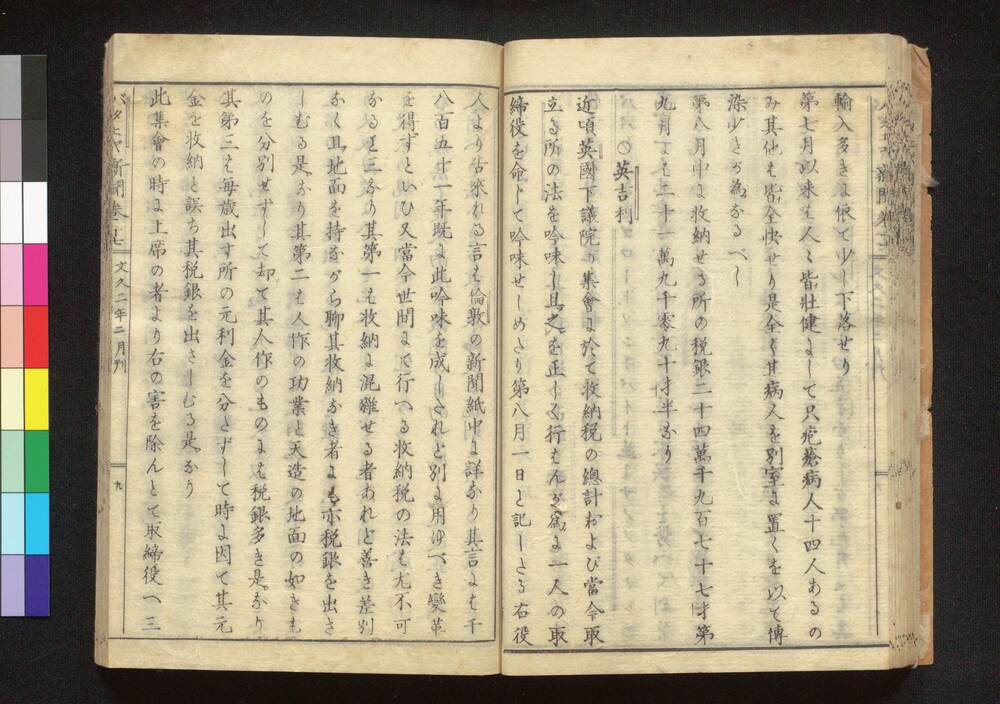 輸入多きに依て少し下落せり
第七月以来も人々皆壯健にして只疱瘡病人十四人あるの
み其他も皆全快せり是全く其病人を別室に置くを以て傳
染少きが為なるべし
第八月中に收納せる所の税銀二十四萬千九百七十七才第
九月にも二十一萬九千零九十才半なり
○英吉利
近頃英國下議院の集會に於て收納税の總計および當今取
立る所の法を吟味し且之を正しく行はんが為に一人の取
締役を命じて吟味せしめたり第八月一日と記したる右役
人より告來れる言は倫敦の新聞紙中に詳なり其言には千
八百五十一年既に此吟味を成したれど別に用ゆべき變革
を得ずといひ又當今世間まで行へる收納税の法も尤不可
なると三なり其第一も收納に混雜せる者あれど善き差別
なく且地面を持ながら聊其收納なき者よも亦税銀を出さ
しむる是なり其第二も人作の功業と天造の地面の如きも
のを分別せずして却て其人作のものよも税銀多き是なり
其第三も毎歳出す所の元利金を分たずして時に因て其元
金を收納と誤ち其税銀を出さしむる是なり
此集會の時に上席の者より右の害を除んとて取締役へ三
バタビヤ新聞卷十七 文久二年二月刊 九